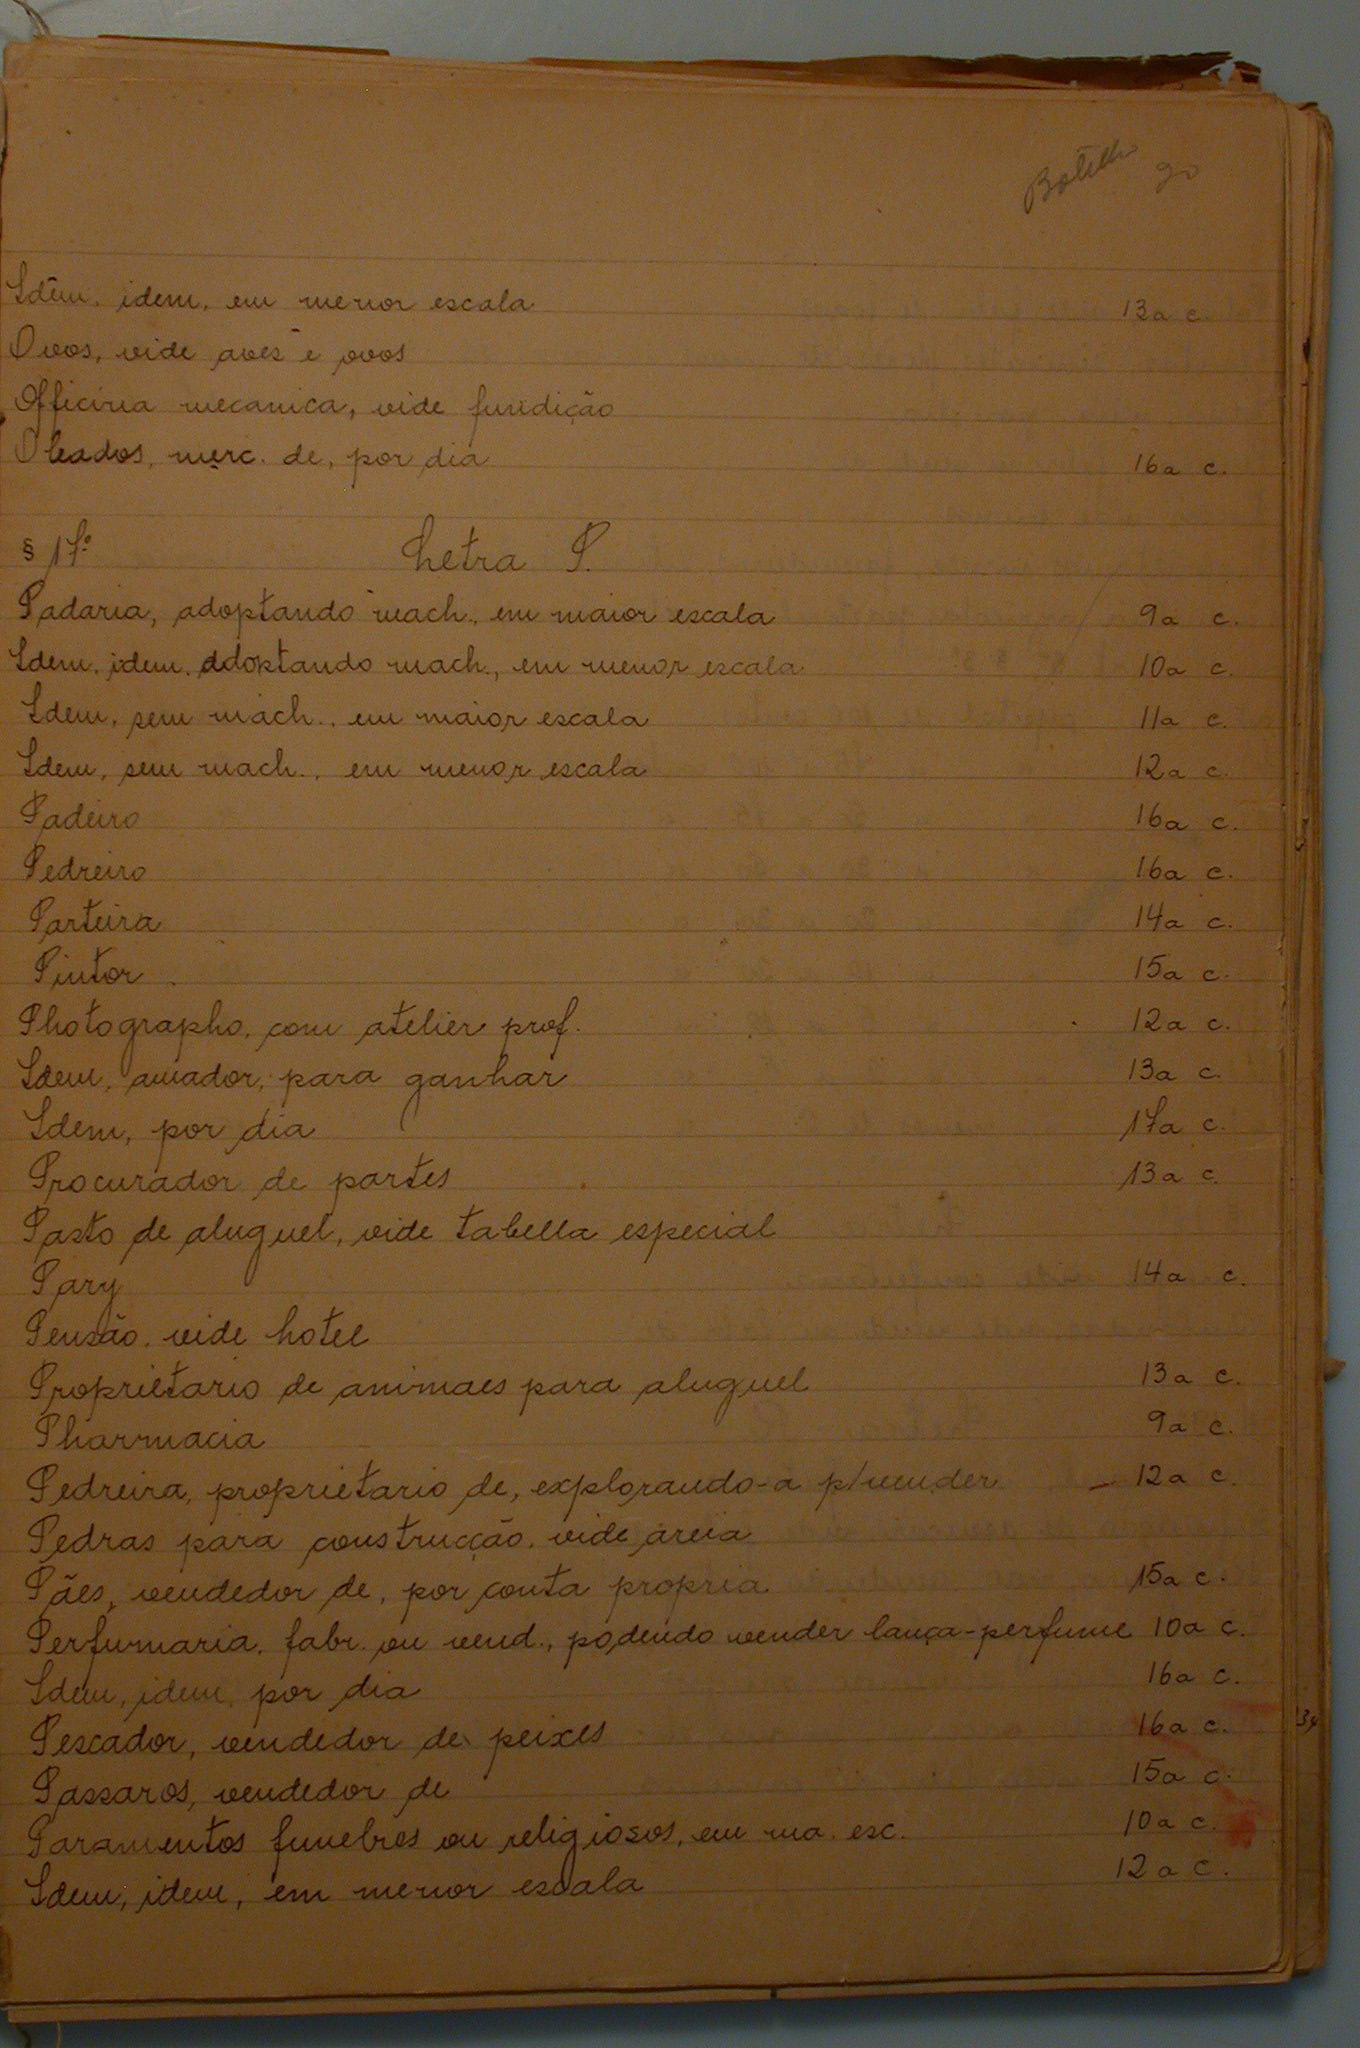 90
Idem, idem, em menor escala 13a c.
Ovos, vide aves e ovos
Officina mecanica, vide fundição
Oleados, merc. de, por dia 16a c.
§ 17º Letra P.
Padaria, adoptando mach., em maior escala 9a c.
Idem, idem, adoptando mach., em menor escala 10a c.
Idem, sem mach., em maior escala 11a c.
Idem, sem mach., em menor escala 12a c.
Padeiro 16a c.
Pedreiro 16a c.
Parteira 14a c.
Pintor 15a c.
Photographo, com atelier prof. 12a c.
Idem, amador, para ganhar 13a c.
Idem, por dia 17a c.
Procurador de partes 13a c.
Pasto de aluguel, vide tabella especial
Pary 14a c.
Pensão, vide hotel
Proprietario de animaes para aluguel 13a c.
Pharmacia 9a c.
Pedreira, proprietario de, explorando-a p/vender 12a c.
Pedras para construcção, vide areia
Pães, vendedor de, por conta propria 15a c.
Perfumaria, fabr. ou vend., podendo vender lança-perfume 10a c.
Idem, idem, por dia 16a c.
Pescador, vendedor de peixes 16a c.
Passaros, vendedor de 15a c.
Paramentos funebres ou religiosos, em ma. esc. 10a c.
Idem, idem, em menor escala 12a c.